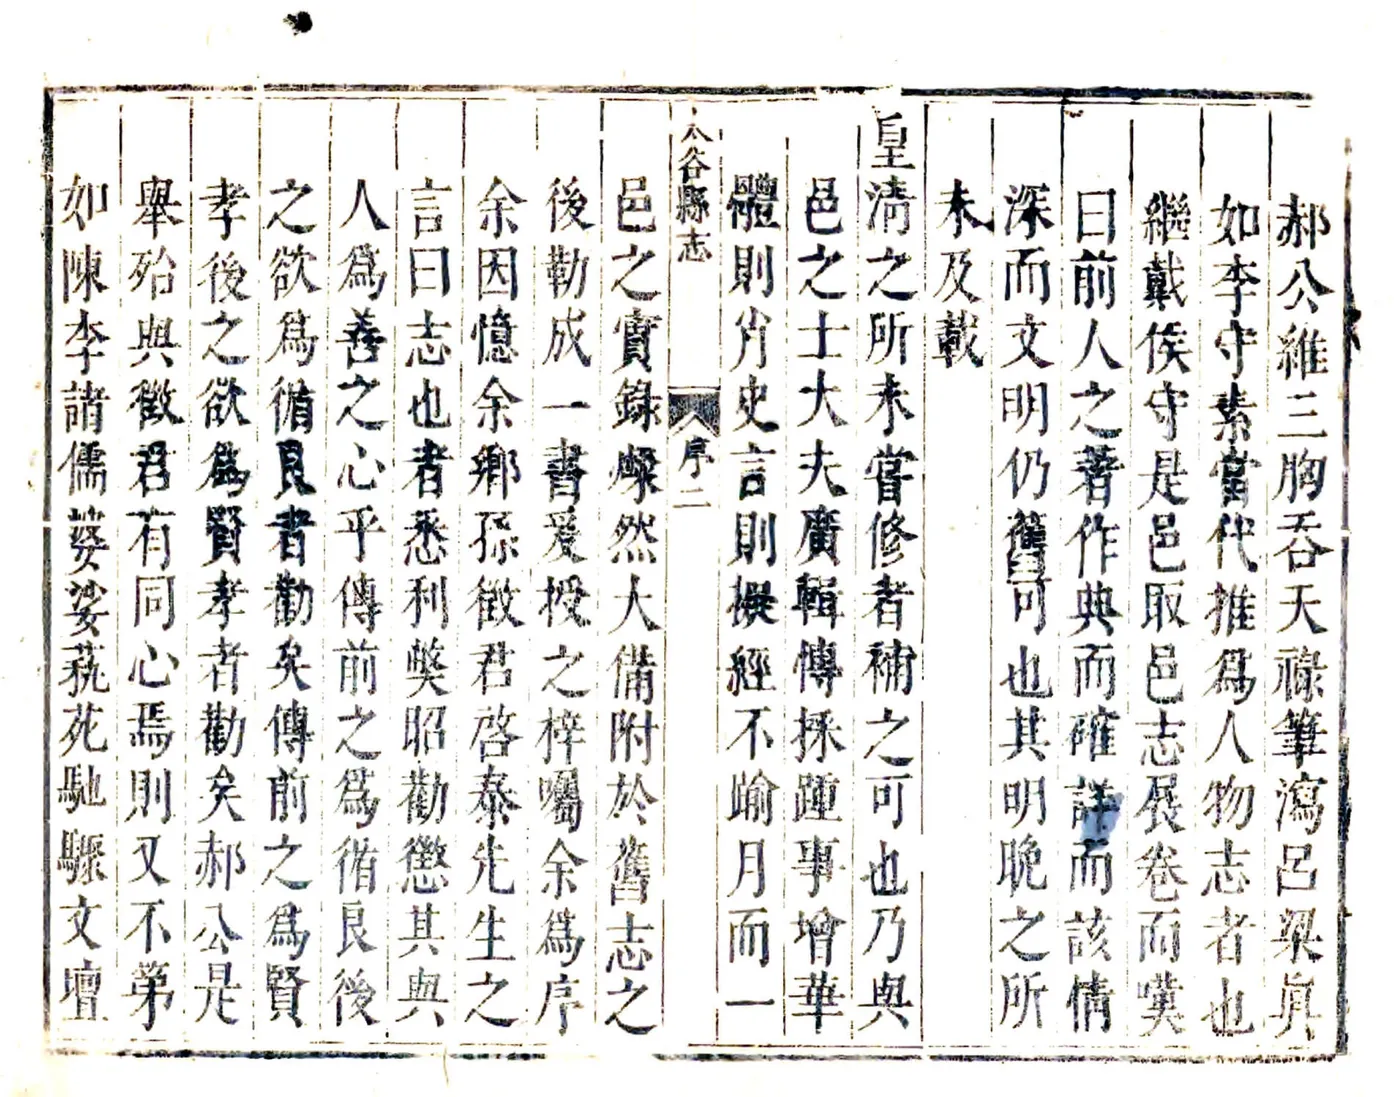 郝公雒三胸吞天祿筆瀉呂梁眞
如李守素當代推爲人物志者也
繼戴侯守是邑取邑志展卷而嘆
曰前人之著作典而確詳而該情
深而文明仍舊可也其明晚之所
未及載
皇淸之所未嘗修者補之可也乃與
邑之士大夫廣輯傳採踵事增華
體則肖史言則擬經不踰月而一
太谷縣志
序二
邑之實錄燦然大備附於舊志之
後勒成一書爰授之梓囑余爲序
余因憶余鄉孫徵君啓泰先生之
言曰志也者悉利獘昭勸懲其與
人爲善之心乎傳前之爲循良後
之欲爲循良者勸矣傳前之爲賢
孝後之欲爲賢孝者勸矣郝公是
舉殆與徵君有同心焉則又不第
如陳李諸儒婆娑蓺苑馳驟文壇